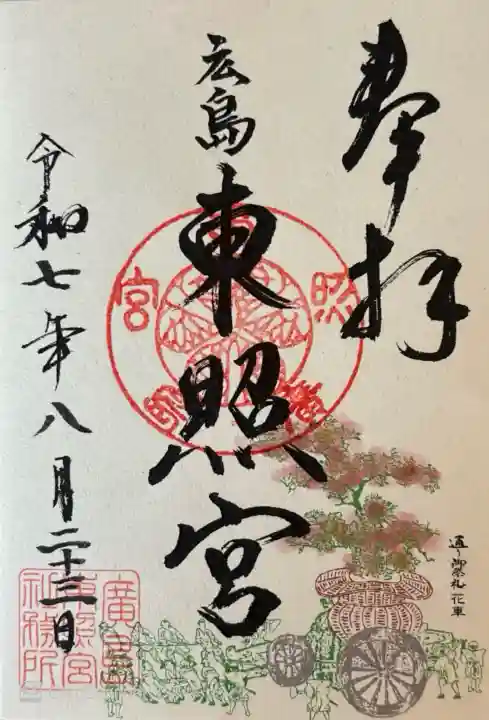 奉拝
広島
東照宮
令和七年八月二十三日
通り御祭礼 花車
廣島
東照宮
社務所